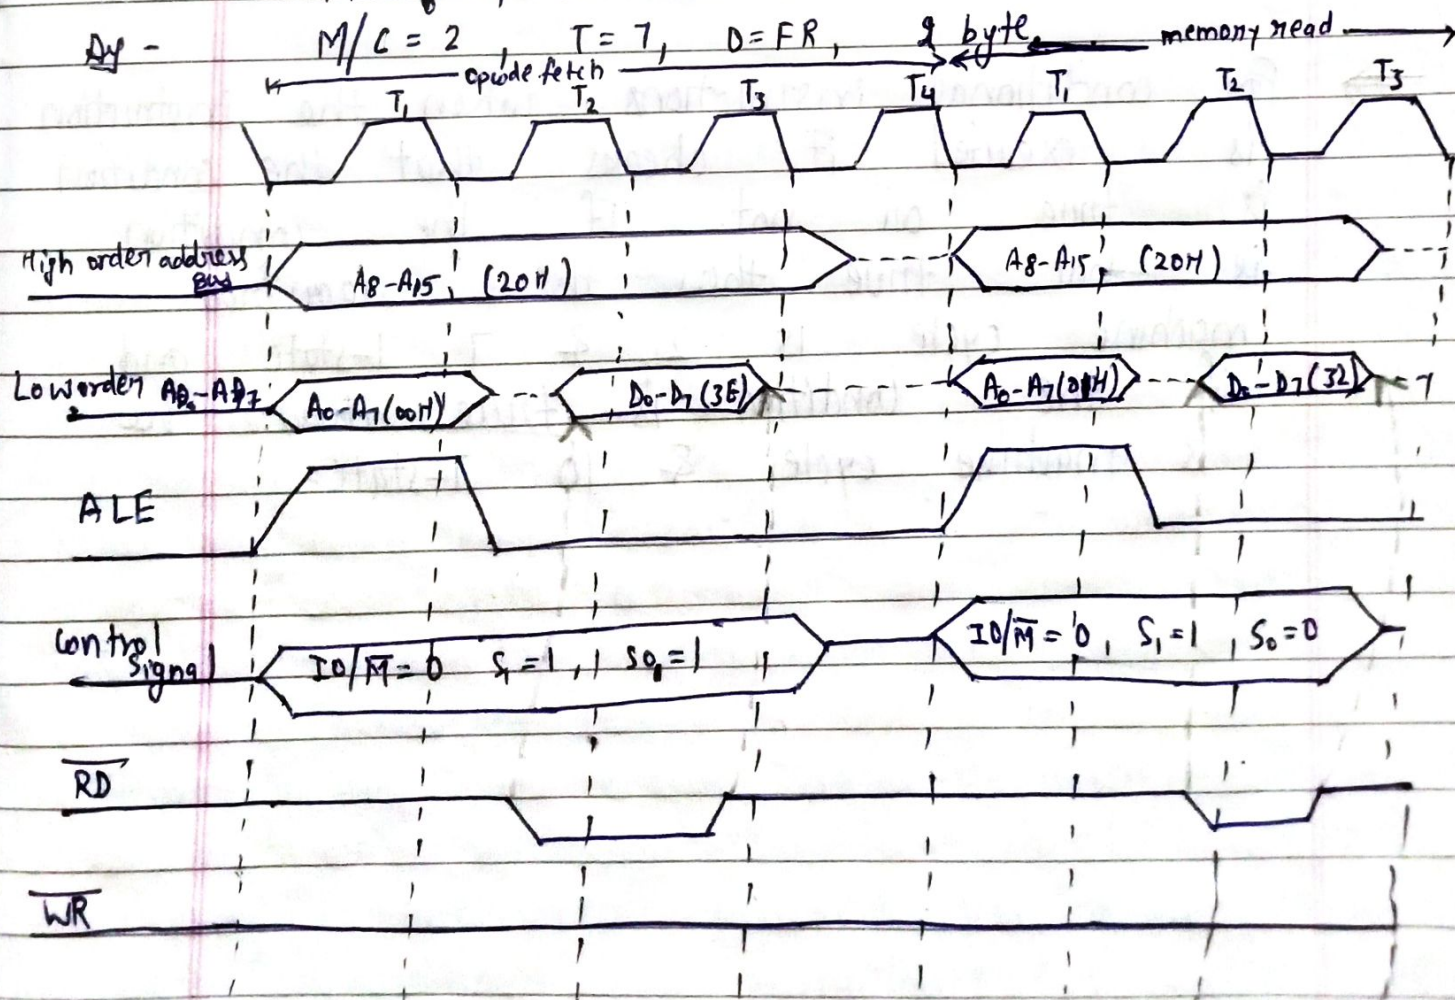 M/C = 2 , T = 7, D = FR, 2 byte
opcode fetch memory read
T1 T2 T3 T4 T1 T2 T3
High order address Bus A8-A15 (20H) A8-A15 (20H)
Low order AD0-AD7 A0-A7 (00H) D0-D7 (3E) A0-A7 (01H) D0-D7 (32)
ALE
Control Signal IO/M̅ = 0 S1 = 1, S0 = 1 IO/M̅ = 0, S1 = 1, S0 = 0
R̅D̅
W̅R̅